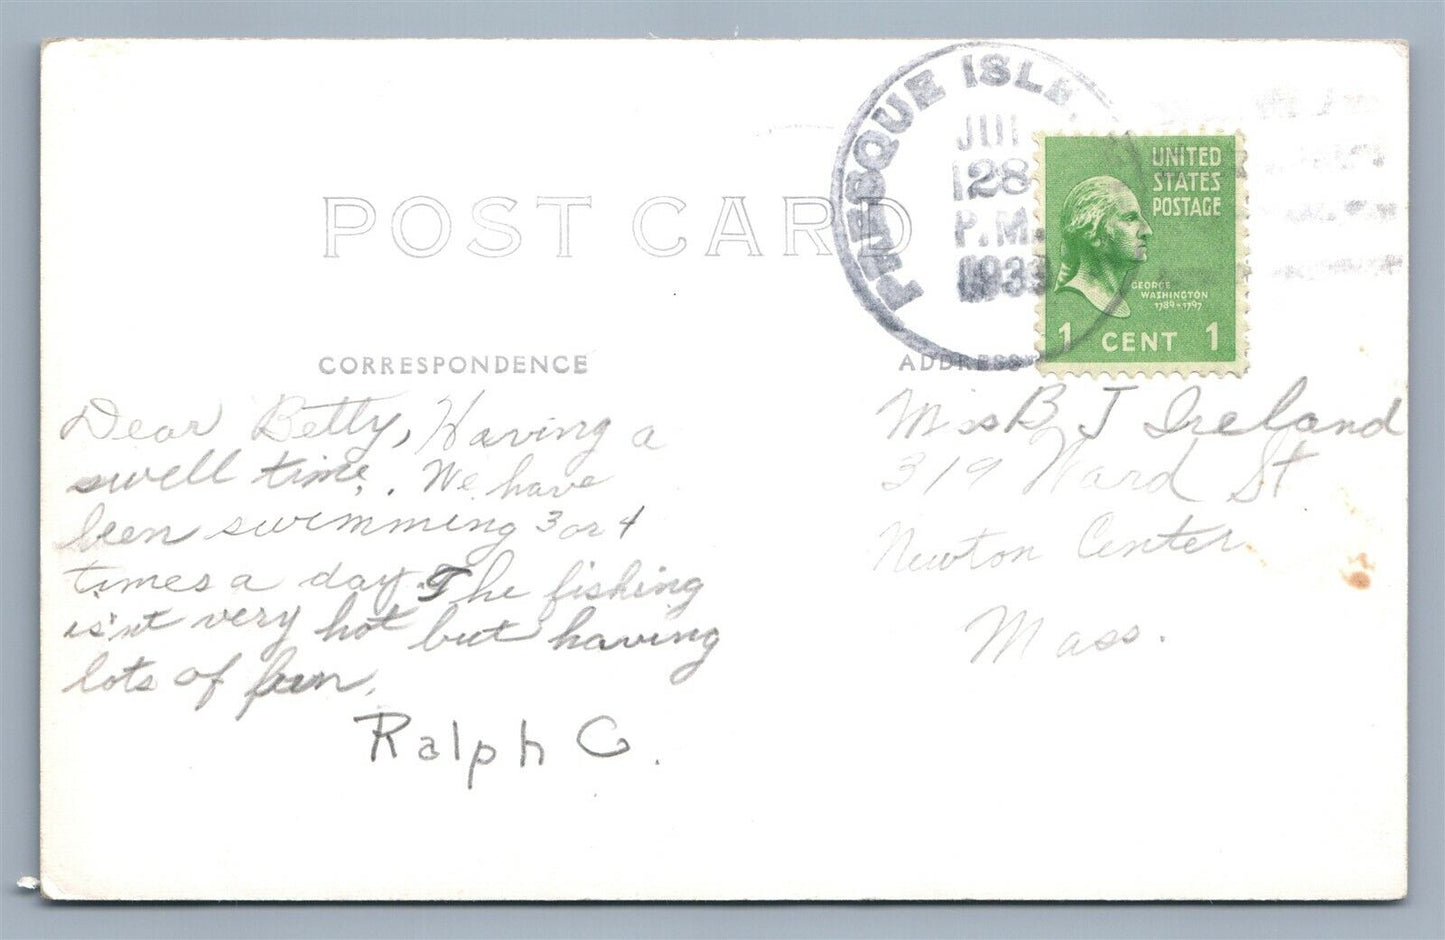 POST CARD
PRESQUE ISLE
JUL
28
P.M.
193
UNITED
STATES
POSTAGE
GEORGE
WASHINGTON
1789-1797
1 CENT 1
CORRESPONDENCE
Dear Betty, Having a
swell time. We have
been swimming 3 or 4
times a day. The fishing
is'nt very hot but having
lots of fun.
Ralph C.
ADDRESS
Miss B J Ireland
319 Ward St
Newton Center
Mass.